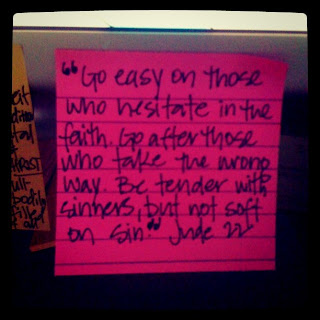 "Go easy on those
who hesitate in the
faith. Go after those
who take the wrong
way. Be tender with
sinners, but not soft
on sin." Jude 22